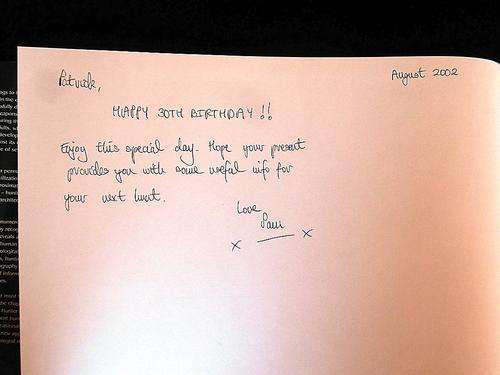 August 2002
Patrick,
HAPPY 30TH BIRTHDAY !!
Enjoy this special day. Hope your present
provides you with some useful info for
your next hunt.
Love
x x